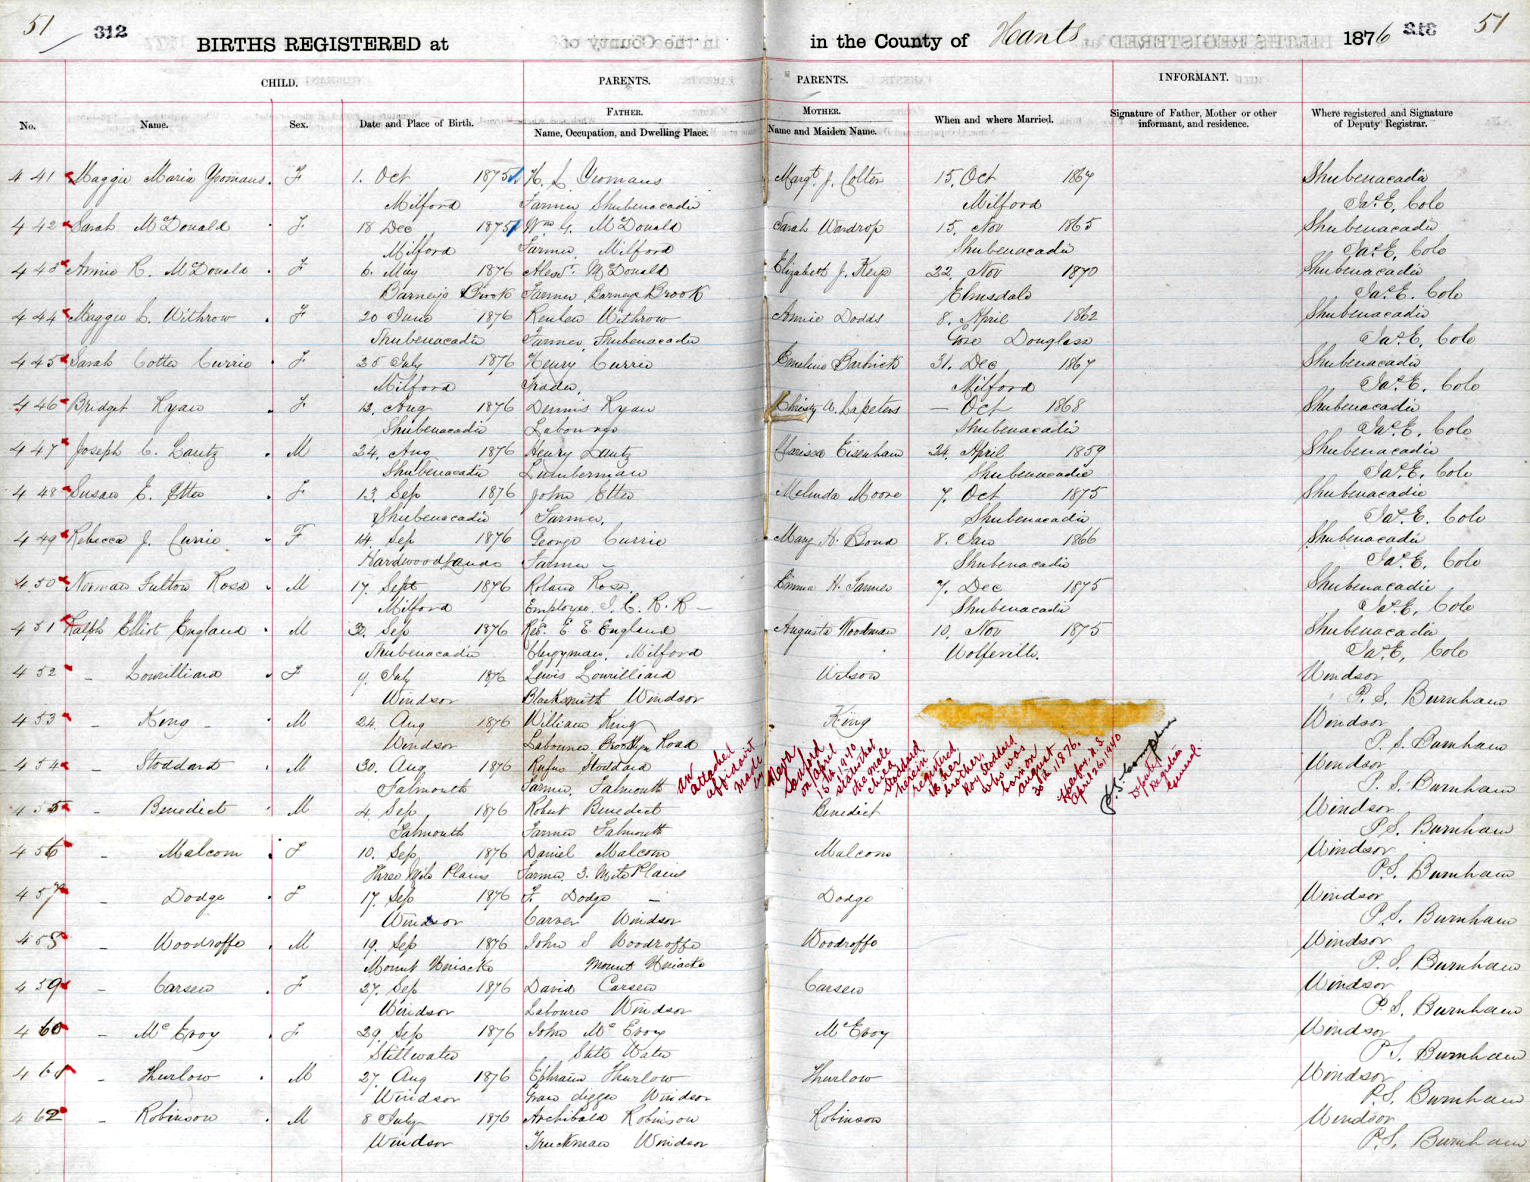 51 312 BIRTHS REGISTERED at in the County of Hants 1876 313 51
CHILD. PARENTS. PARENTS. INFORMANT.
FATHER. MOTHER.
No. Name. Sex. Date and Place of Birth. Name, Occupation, and Dwelling Place. Name and Maiden Name. When and where Married. Signature of Father, Mother or other informant, and residence. Where registered and Signature of Deputy Registrar.
441 Maggie Maria Yeomans. F 1. Oct 1875 H. L. Yeomans Margt. J. Colter 15. Oct 1867 Shubenacadie
Milford Farmer Shubenacadie Milford Jas. E. Cole
442 Sarah McDonald F 18 Dec 1875 Wm G. McDonald Sarah Wardrop 15. Nov 1865 Shubenacadie
Milford Farmer, Milford Shubenacadie Jas. E. Cole
443 Annie R. McDonald F 6. May 1876 Alexr. McDonald Elizabeth J. Keys 22. Nov 1870 Shubenacadie
Barneys Brook Farmer, Barneys Brook Elmsdale Jas. E. Cole
444 Maggie L. Withrow F 20 June 1876 Reuben Withrow Annie Dodds 8. April 1862 Shubenacadie
Shubenacadie Farmer Shubenacadie Gore Douglass Jas. E. Cole
445 Sarah Cotter Currie F 25 July 1876 Henry Currie Emeline 31. Dec 1867 Shubenacadie
Milford Trader, Milford Jas. E. Cole
446 Bridget Ryan F 12. Aug 1876 Dennis Ryan Christy A. — Oct 1868 Shubenacadie
Shubenacadie Labourer Shubenacadie Jas. E. Cole
447 Joseph C. Lantz M 24. Aug 1876 Henry Lantz Clarissa Eisenhaur 24. April 1859 Shubenacadie
Shubenacadie Lumberman Shubenacadie Jas. E. Cole
448 Susan E. Etter F 13. Sep 1876 John Etter Melinda Moore 7. Oct 1875 Shubenacadie
Shubenacadie Farmer, Shubenacadie Jas. E. Cole
449 Rebecca J. Currie F 14. Sep 1876 George Currie Mary H. Bond 8. Jan 1866 Shubenacadie
Hardwoodlands Farmer — Shubenacadie Jas. E. Cole
450 Norman Fulton Rose M 17. Sept 1876 Roland Rose, Emma H. 7. Dec 1875 Shubenacadie
Milford Employee. I. C. R. R — Shubenacadie Jas. E. Cole
451 Ralph Elliot England M Sep 1876 Rev. E E England Augusta Woodman 10. Nov 1875 Shubenacadie
Shubenacadie Clergyman, Milford Wolfville. Jas. E. Cole
452 - Lowilliard F 9. July 1876 Lewis Lowilliard Wilson Windsor
Windsor Blacksmith Windsor P. S. Burnham
453 - King - M 24. Aug 1876 William King King Windsor
Windsor Labourer Brooklyn Road P. S. Burnham
454 - Stoddard M 30. Aug 1876 Rufus Stoddard Windsor
Falmouth Farmer, Falmouth P. S. Burnham
An attached affidavit made by Sanford on April 15th, 1940 states that the male child Stoddard herein registered is her brother, Roy Stoddard who was born on August 30th, 1876.
Halifax, N.S. April 26, 1940
Deputy Registrar General.
455 - Benedict M 4. Sep 1876 Robert Benedict Benedict Windsor
Falmouth Farmer Falmouth P. S. Burnham
456 - Malcom F 10. Sep 1876 Daniel Malcom Malcom Windsor
Three Mile Plains Farmer 3. Mile Plains P. S. Burnham
457 - Dodge F 17. Sep 1876 F. Dodge — Dodge Windsor
Windsor Carver Windsor P. S. Burnham
458 - Woodroffe M 19. Sep 1876 John S Woodroffe Woodroffe Windsor
Mount Uniacke Mount Uniacke P. S. Burnham
459 - Carsen F 27. Sep 1876 David Carsen Carsen Windsor
Windsor Labourer Windsor P. S. Burnham
460 - McEvoy F 29. Sep 1876 John McEvoy McEvoy Windsor
Stillwater Still Water P. S. Burnham
461 - Thurlow M 27. Aug 1876 Ephraim Thurlow Thurlow Windsor
Windsor Grave digger Windsor P. S. Burnham
462 - Robinson M 8 July 1876 Archibald Robinson Robinson Windsor
Windsor Truckman Windsor P. S. Burnham